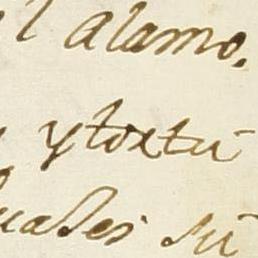 l alamo.
y tortu
uales su